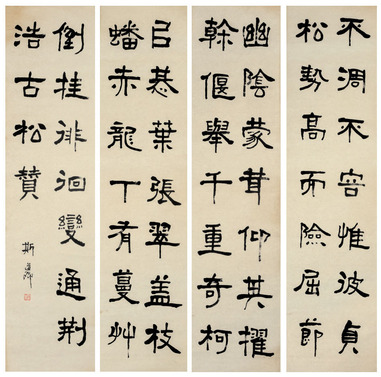 不凋不容惟彼貞
松勢高而險屈節
幽陰蒙茸仰其擢
幹偃舉千重奇柯
㠯恭葉張翠蓋枝
蟠赤龍丅有蔓艸
倒挂徘徊變通荆
浩古松贊